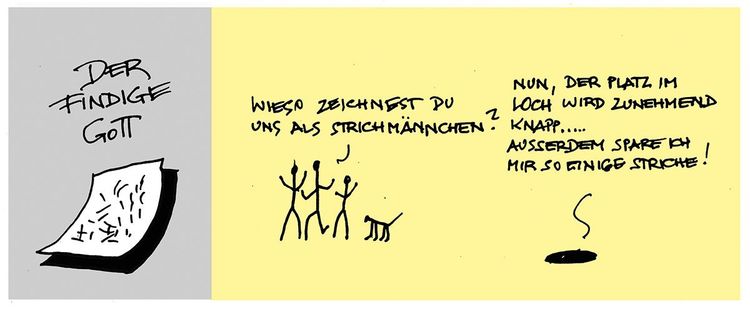 DER
FINDIGE
GOTT
WIESO ZEICHNEST DU
UNS ALS STRICHMÄNNCHEN?
NUN, DER PLATZ IM
LOCH WIRD ZUNEHMEND
KNAPP.....
AUSSERDEM SPARE ICH
MIR SO EINIGE STRICHE!